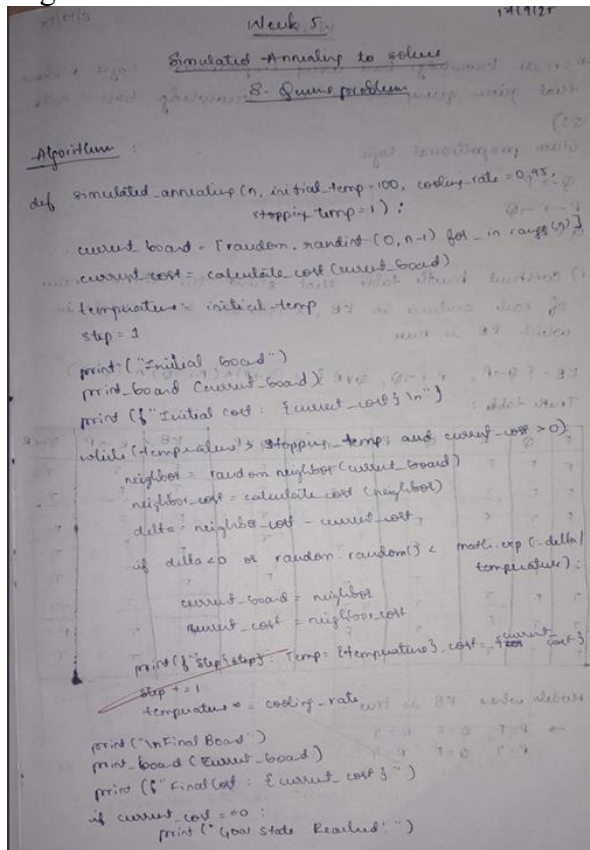 Week 5
17/9/25
Simulated Annealing to solve
8-Queens problem
Algorithm :
def simulated_annealing (n, initial_temp=100, cooling_rate=0.95,
stopping_temp=1) :
current_board = [random.randint (0, n-1) for _ in range(n)]
current_cost = calculate_cost (current_board)
temperature = initial_temp
step = 1
print ("Initial board")
print_board (current_board)
print (f "Initial cost : {current_cost} \n")
while (temperature > stopping_temp and current_cost > 0)
neighbor = random neighbor (current_board)
neighbor_cost = calculate cost (neighbor)
delta = neighbor_cost - current_cost,
if delta < 0 or random.random() < math.exp (-delta/
temperature) :
current_board = neighbor
current_cost = neighbor_cost
print (f "Step {step} : Temp = {temperature}, cost = {current_cost}
step += 1
temperature * = cooling_rate
print ("\nFinal Board")
print_board (current_board)
print (f "Final Cost : {current_cost} ")
if current_cost == 0 :
print ("Goal State Reached! ")